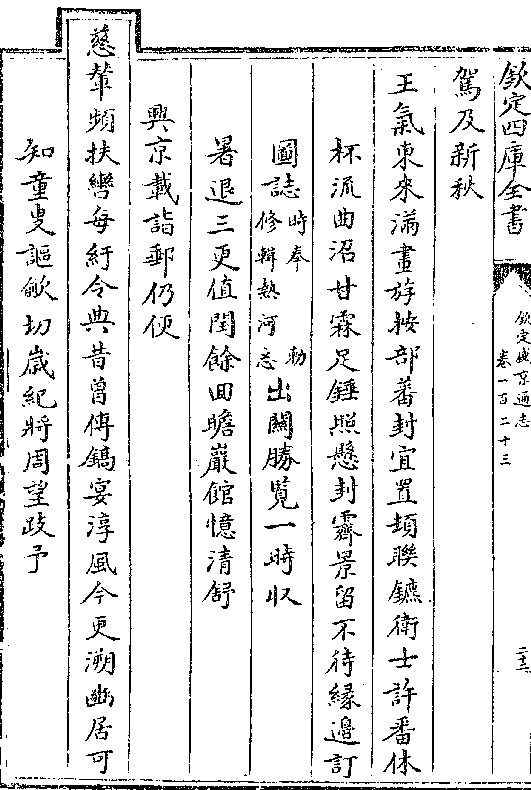 欽定四庫全書
欽定盛京通志
卷一百二十三
駕及新秋
王氣東來滿畫斿按部蕃封宜置頓聯鑣衛士許番休
杯流曲沼甘霖足錘照懸封霽景留不待緣邊訂
圖誌時奉　勅修輯熱河志出關勝覽一時収
暑退三更值閏餘回瞻巖館憶清舒
興京載詣郵仍便
慈輦頻扶轡每紆令典昔曾傳鎬宴淳風今更溯豳居可
知童叟謳歈切歲紀將周望跂予